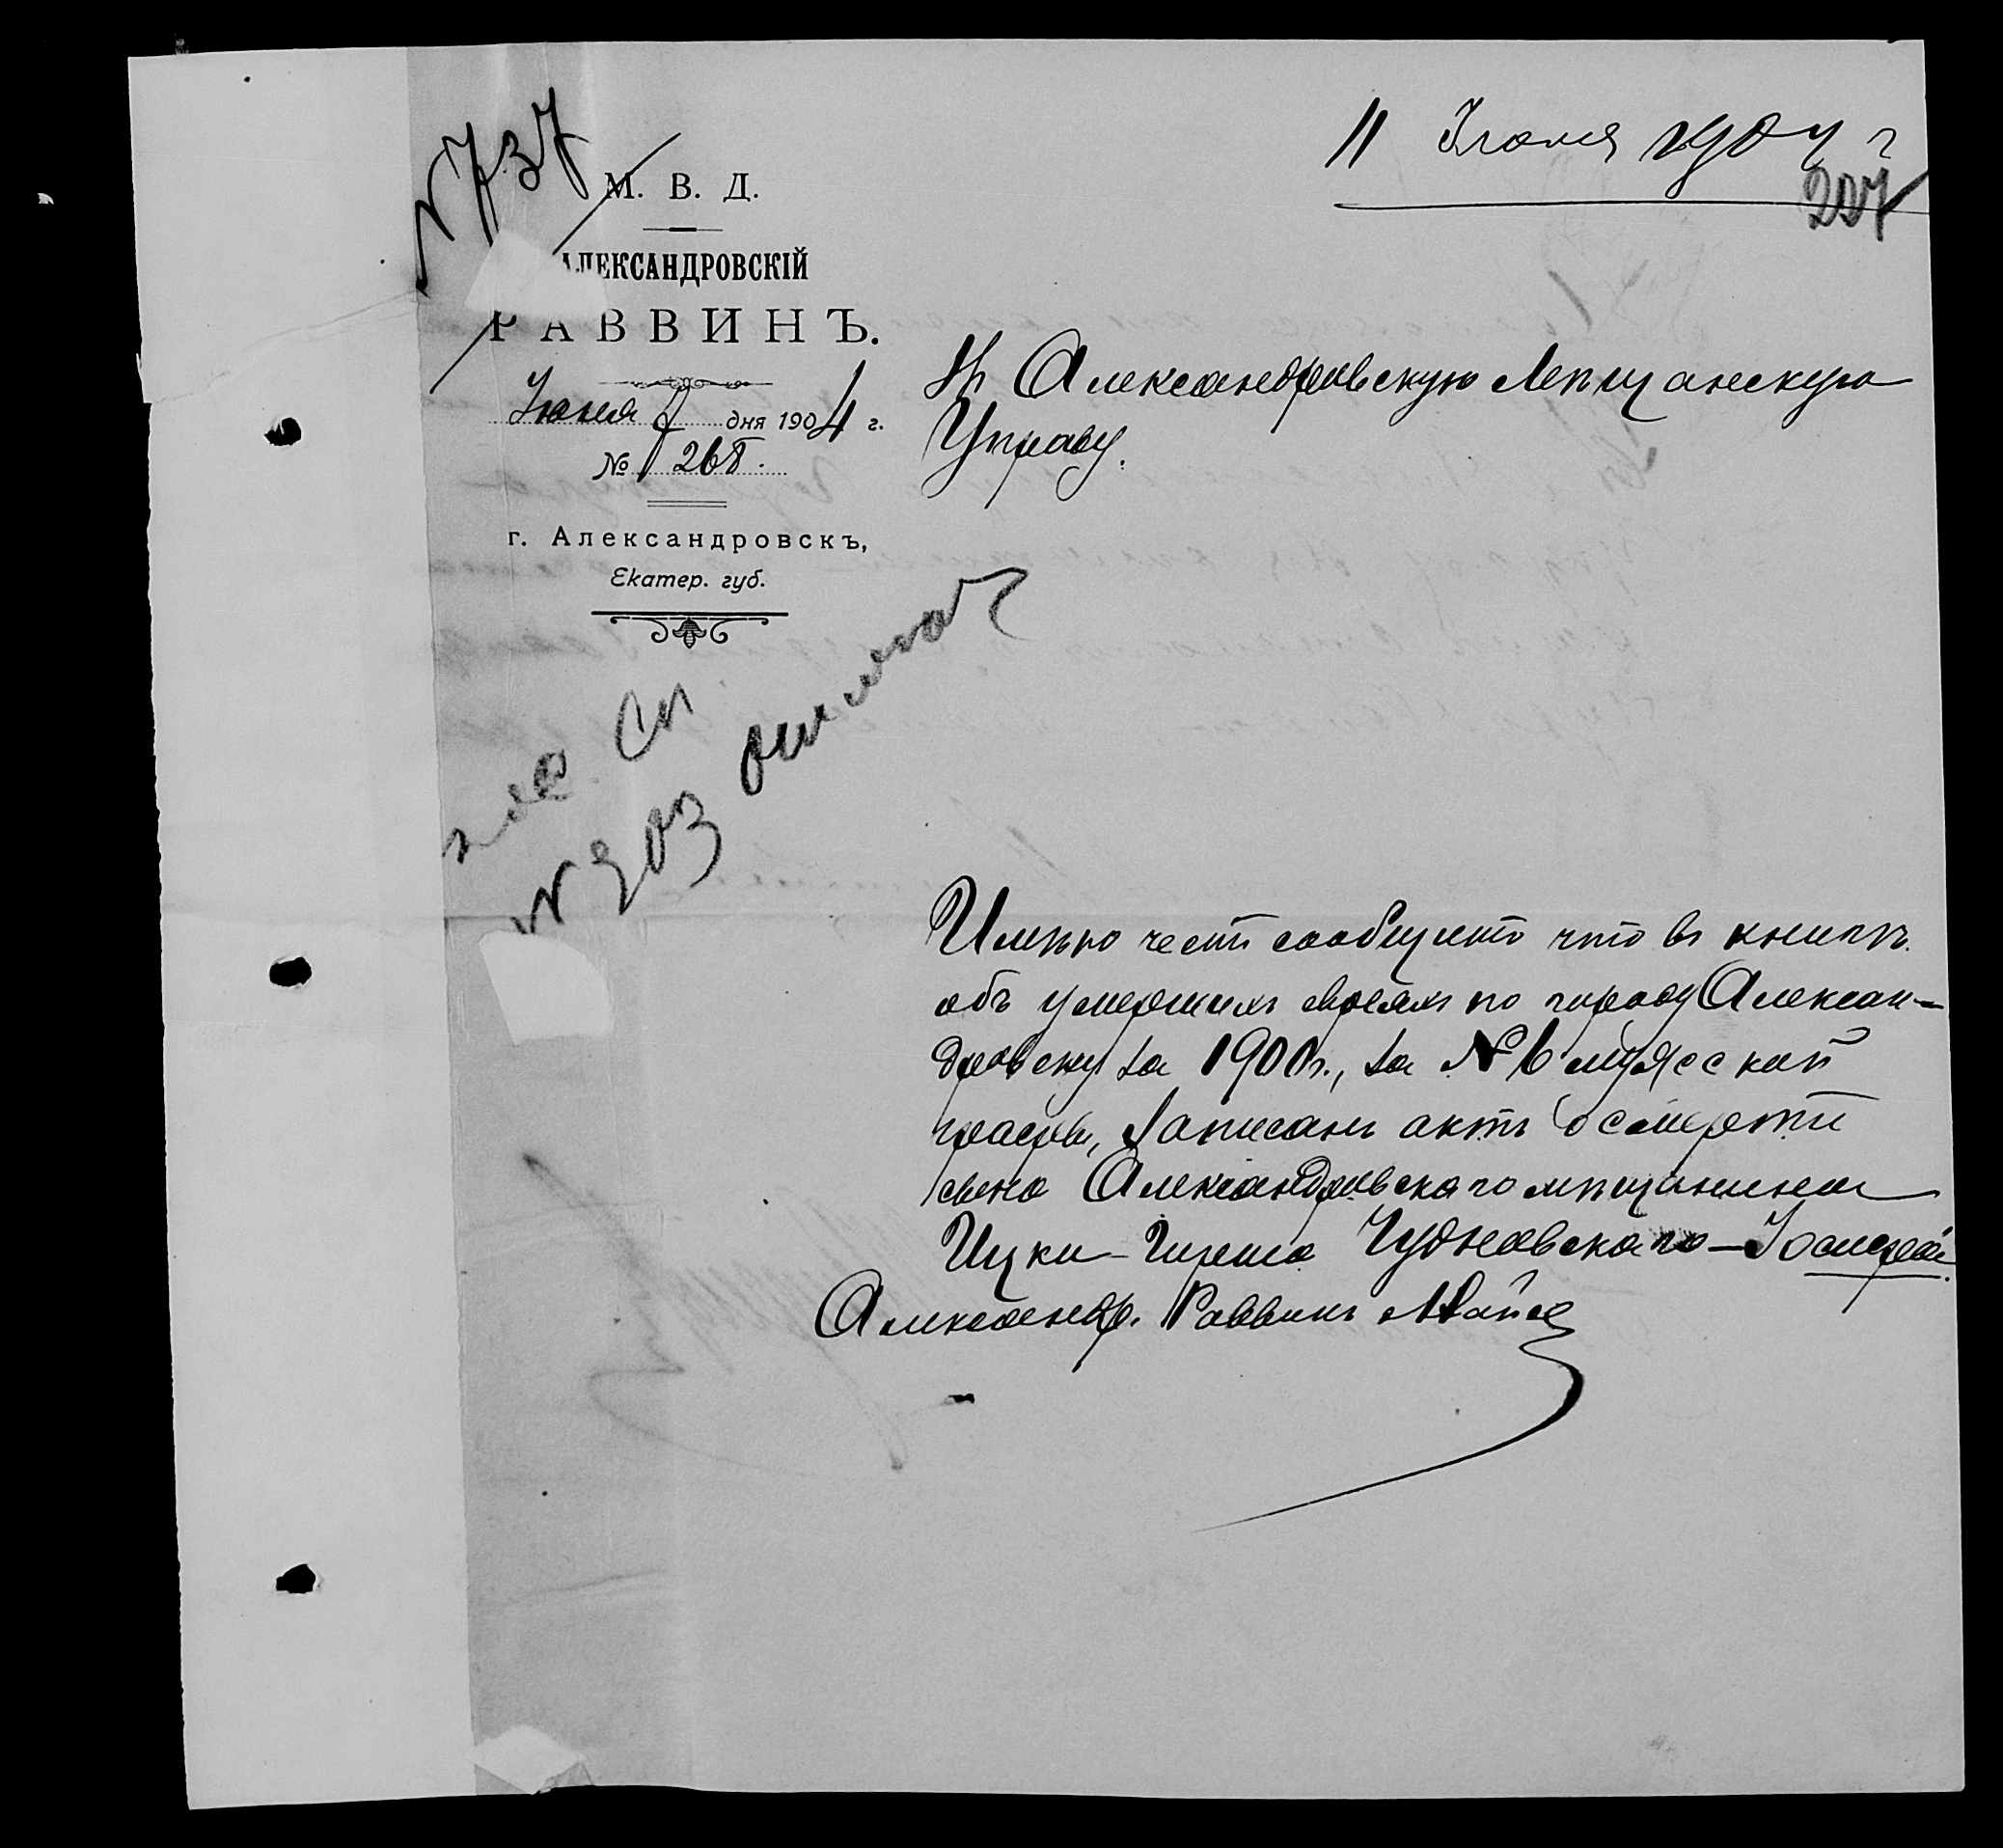 № 737
11 Іюня 1904 г
207
М. В. Д.
АЛЕКСАНДРОВСКІЙ
РАВВИНЪ.
Іюня 7 дня 1904 г.
№ 268.
г. Александровскъ,
Екатер. губ.
Въ Александровскую Мѣщанскую
Управу.
сп.
№ 303 отмѣтка
Имѣю честь сообщить что въ книгѣ
объ умершихъ евреяхъ по городу Алексан-
дровску за 1900 г., за № 6 мужской
графы, записанъ актъ о смерти
сына Александровскаго мѣщанина
Ицки-Гирша Чудновскаго – Іосифа.
Александр. Раввинъ